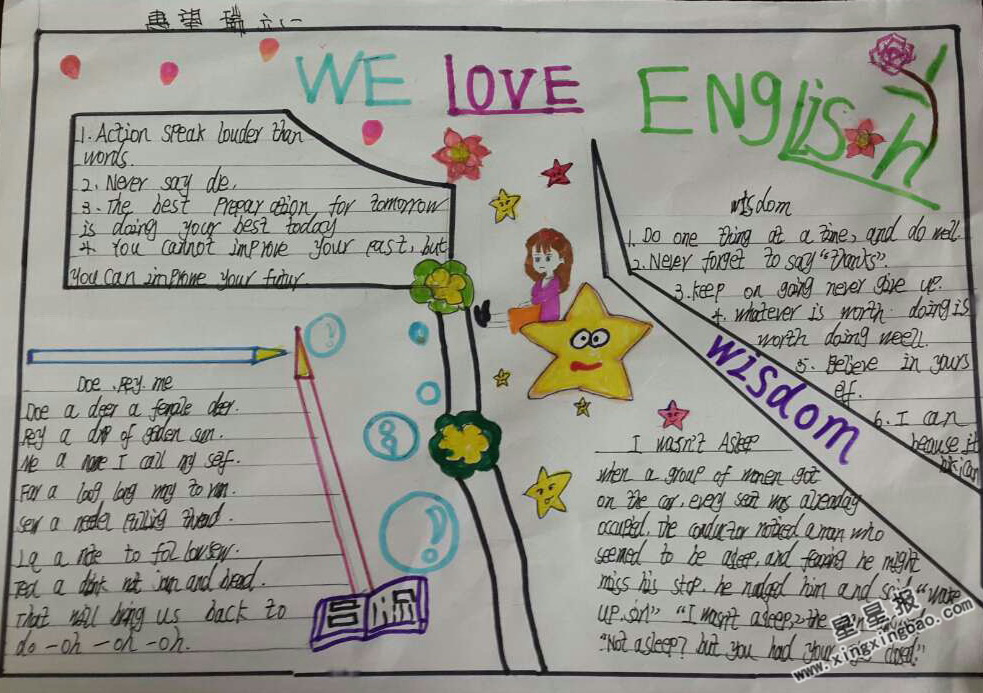 惠望瑞 六(一)
WE LOVE ENglish
1. Action speak louder than
words.
2. Never say die.
3. The best Preparation for tomorrow
is doing your best today
4. You cannot improve your past, but
you can improve your futur.
wisdom
1. Do one thing at a time, and do well.
2. Never forget to say "thanks".
3. keep on going never give up.
4. whatever is worth doing is
worth doing weell.
5. Believe in yours
elf.
6. I can
because it
wisdom
Doe Rey me
Doe a deer a female deer.
Rey a drop of golden sun.
Me a name I call my self.
For a long long way to run.
Sew a needel pulling thread.
La a note to follow sew.
Tea a drink not jam and bread.
That will bring us back to
do -oh -oh -oh.
I wasn't Asleep
when a group of women got
on the car, every seat was alerenday
occupied. The conductor noticed a man who
seemed to be asleep, and fearing he might
miss his stop. he nudged him and said "wake
up. sir!" "I wasn't asleep, the
"Not asleep? but you had your closed."
星星报
www.xingxingbao.com